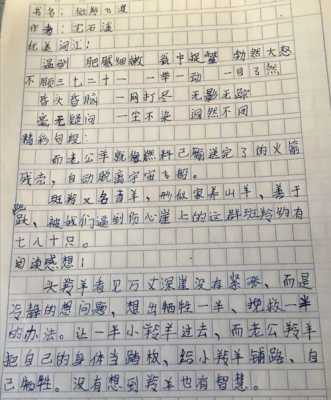 书名：斑羚飞渡
作者：沈石溪
优美词汇：
逼到 肥腻细嫩 瓮中捉鳖 勃然大怒
不顾三七二十一 一举一动 一目了然
昏头昏脑 一网打尽 无影无踪
毫无疑问 一尘不染 迥然不同
精彩句段：
而老公羊就像燃料已输送完了的火箭
残壳，自动脱离宇宙飞船。
斑羚又名青羊，形似家养山羊，善于
跳跃，被我们逼到伤心崖上的这群斑羚约有
七八十只。
阅读感想：
头羚羊看见万丈深崖没有紧张，而是
冷静的想问题，想出牺牲一半，挽救一半
的办法。让一半小羚羊过去，而老公羚羊
把自己的身体当踏板，给小羚羊铺路，自
己牺牲。没有想到羚羊也有智慧。